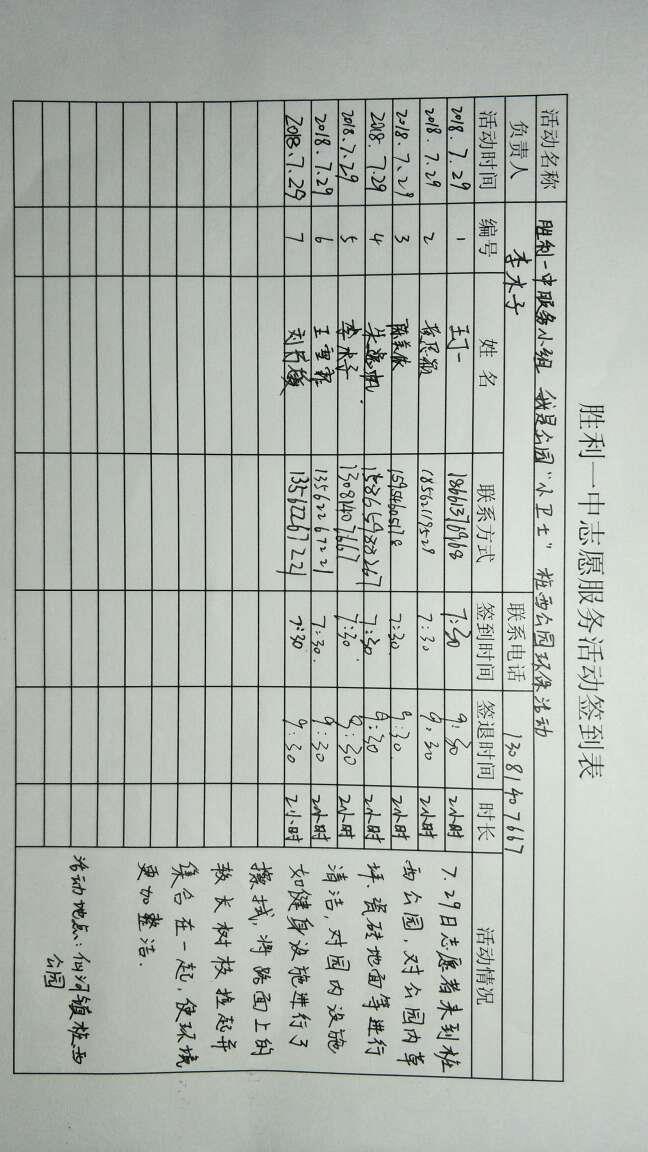 胜利一中志愿服务活动签到表
活动名称 胜利一中服务小组 我是公园“小卫士” 桩西公园环保活动
负责人 李木子 联系电话 13081407667
活动时间 编号 姓名 联系方式 签到时间 签退时间 时长 活动情况
2018.7.29 1 王丁一 18661376968 7:30 9:30 2小时
2018.7.29 2 18562119528 7:30 9:30 2小时
2018.7.29 3 15954605178 7:30 9:30 2小时
2018.7.29 4 15865988267 7:30 9:30 2小时
2018.7.29 5 李木子 13081407667 7:30 9:30 2小时
2018.7.29 6 王雪菲 13562267221 7:30 9:30 2小时
2018.7.29 7 13562267221 7:30 9:30 2小时
7.29日志愿者来到桩
西公园,对公园内草
坪、瓷砖地面等进行
清洁,对园内设施
如健身设施进行了
擦拭,将路面上的
较长树枝捡起并
集合在一起,使环境
更加整洁.
活动地点:仙河镇桩西
公园